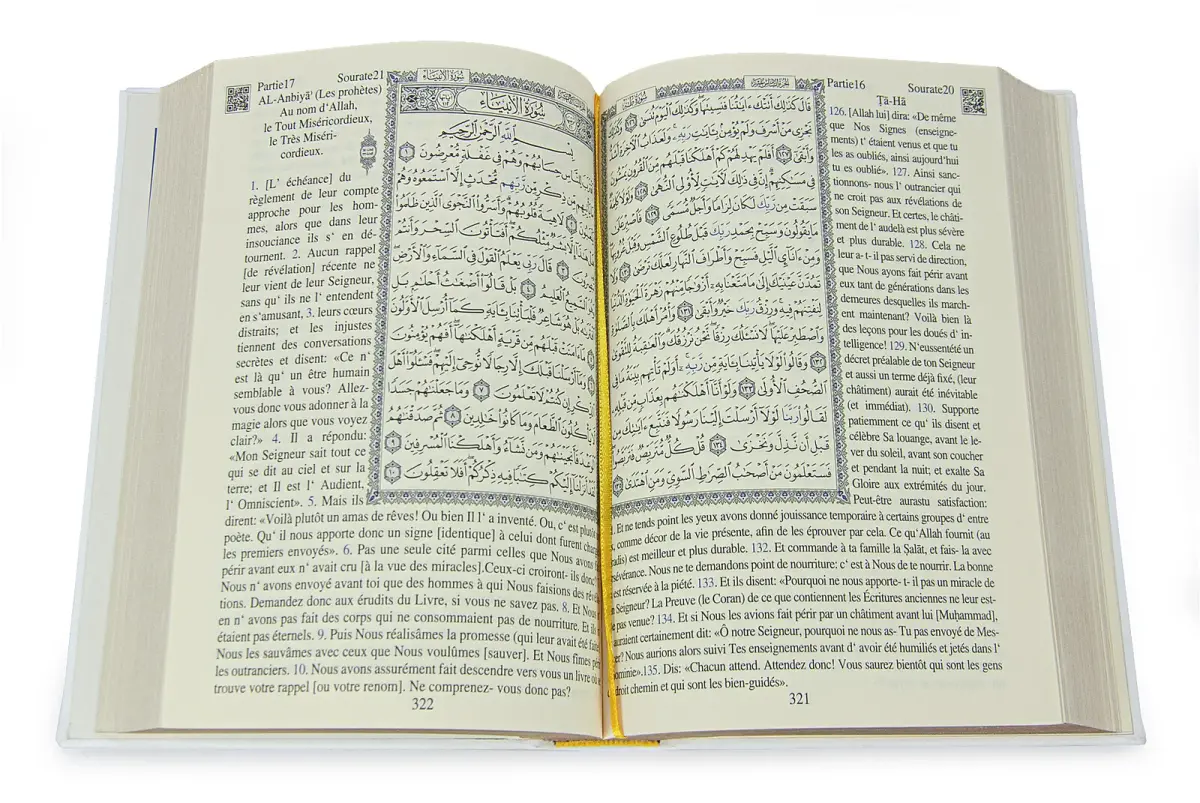 Partie16 Sourate20
Ṭā-Hā
قَالَ كَذَٰلِكَ أَتَتْكَ ءَايَٰتُنَا فَنَسِيتَهَا وَكَذَٰلِكَ ٱلْيَوْمَ تُنسَىٰ ١٢٦
نَجْزِى مَنْ أَسْرَفَ وَلَمْ يُؤْمِنۢ بِـَٔايَٰتِ رَبِّهِۦ وَلَعَذَابُ ٱلْءَاخِرَةِ
وَأَبْقَىٰٓ ١٢٧ أَفَلَمْ يَهْدِ لَهُمْ كَمْ أَهْلَكْنَا قَبْلَهُم مِّنَ ٱلْقُرُونِ يَمْشُونَ
فِى مَسَٰكِنِهِمْ إِنَّ فِى ذَٰلِكَ لَءَايَٰتٍ لِّأُو۟لِى ٱلنُّهَىٰ ١٢٨
سَبَقَتْ مِن رَّبِّكَ لَكَانَ لِزَامًا وَأَجَلٌ مُّسَمًّى ١٢٩ فَٱصْبِرْ عَلَىٰ
مَا يَقُولُونَ وَسَبِّحْ بِحَمْدِ رَبِّكَ قَبْلَ طُلُوعِ ٱلشَّمْسِ وَقَبْلَ
وَمِنْ ءَانَآئِ ٱلَّيْلِ فَسَبِّحْ وَأَطْرَافَ ٱلنَّهَارِ لَعَلَّكَ تَرْضَىٰ ١٣٠
تَمُدَّنَّ عَيْنَيْكَ إِلَىٰ مَا مَتَّعْنَا بِهِۦٓ أَزْوَٰجًا مِّنْهُمْ زَهْرَةَ ٱلْحَيَوٰةِ ٱلدُّنْيَا
لِنَفْتِنَهُمْ فِيهِ وَرِزْقُ رَبِّكَ خَيْرٌ وَأَبْقَىٰ ١٣١ وَأْمُرْ أَهْلَكَ بِٱلصَّلَوٰةِ
وَٱصْطَبِرْ عَلَيْهَا لَا نَسْـَٔلُكَ رِزْقًا نَّحْنُ نَرْزُقُكَ وَٱلْعَٰقِبَةُ لِلتَّقْوَىٰ
١٣٢ وَقَالُوا۟ لَوْلَا يَأْتِينَا بِـَٔايَةٍ مِّن رَّبِّهِۦٓ أَوَلَمْ تَأْتِهِم بَيِّنَةُ مَا فِى
ٱلصُّحُفِ ٱلْأُولَىٰ ١٣٣ وَلَوْ أَنَّآ أَهْلَكْنَٰهُم بِعَذَابٍ مِّن قَبْلِهِۦ
لَقَالُوا۟ رَبَّنَا لَوْلَآ أَرْسَلْتَ إِلَيْنَا رَسُولًا فَنَتَّبِعَ ءَايَٰتِكَ مِن
قَبْلِ أَن نَّذِلَّ وَنَخْزَىٰ ١٣٤ قُلْ كُلٌّ مُّتَرَبِّصٌ فَتَرَبَّصُوا۟
فَسَتَعْلَمُونَ مَنْ أَصْحَٰبُ ٱلصِّرَٰطِ ٱلسَّوِىِّ وَمَنِ ٱهْتَدَىٰ ١٣٥
126. [Allah lui] dira: «De même
que Nos Signes (enseigne-
ments) t' étaient venus et que tu
les as oubliés, ainsi aujourd'hui
tu es oublié». 127. Ainsi sanc-
tionnons- nous l' outrancier qui
ne croit pas aux révélations de
son Seigneur. Et certes, le châti-
ment de l' audelà est plus sévère
et plus durable. 128. Cela ne
leur a- t- il pas servi de direction,
que Nous ayons fait périr avant
eux tant de générations dans les
demeures desquelles ils march-
ent maintenant? Voilà bien là
des leçons pour les doués d' in-
telligence! 129. N'eussentété un
décret préalable de ton Seigneur
et aussi un terme déjà fixé, (leur
châtiment) aurait été inévitable
(et immédiat). 130. Supporte
patiemment ce qu' ils disent et
célèbre Sa louange, avant le le-
ver du soleil, avant son coucher
et pendant la nuit; et exalte Sa
Gloire aux extrémités du jour.
Peut-être aurastu satisfaction:
Et ne tends point les yeux avons donné jouissance temporaire à certains groupes d' entre
comme décor de la vie présente, afin de les éprouver par cela. Ce qu'Allah fournit (au
est meilleur et plus durable. 132. Et commande à ta famille la Ṣalāt, et fais- la avec
Nous ne te demandons point de nourriture: c' est à Nous de te nourrir. La bonne
est réservée à la piété. 133. Et ils disent: «Pourquoi ne nous apporte- t- il pas un miracle de
Seigneur? La Preuve (le Coran) de ce que contiennent les Écritures anciennes ne leur est-
pas venue? 134. Et si Nous les avions fait périr par un châtiment avant lui [Muḥammad],
certainement dit: «Ô notre Seigneur, pourquoi ne nous as- Tu pas envoyé de Mes-
Nous aurions alors suivi Tes enseignements avant d' avoir été humiliés et jetés dans l'
135. Dis: «Chacun attend. Attendez donc! Vous saurez bientôt qui sont les gens
droit chemin et qui sont les bien-guidés».
321
Partie17 Sourate21
AL-Anbiyā' (Les prophètes)
Au nom d'Allah,
le Tout Miséricordieux,
le Très Miséri-
cordieux.
سُورَةُ الأَنبِيَاء
سُورَةُ الأَنبِيَاءِ
بِسْمِ ٱللَّهِ ٱلرَّحْمَٰنِ ٱلرَّحِيمِ
لِلنَّاسِ حِسَابُهُمْ وَهُمْ فِى غَفْلَةٍ مُّعْرِضُونَ ١
مِن ذِكْرٍ مِّن رَّبِّهِم مُّحْدَثٍ إِلَّا ٱسْتَمَعُوهُ وَهُمْ
لَاهِيَةً قُلُوبُهُمْ وَأَسَرُّوا۟ ٱلنَّجْوَى ٱلَّذِينَ ظَلَمُوا۟
إِلَّا بَشَرٌ مِّثْلُكُمْ أَفَتَأْتُونَ ٱلسِّحْرَ وَأَنتُمْ
٣ قَالَ رَبِّى يَعْلَمُ ٱلْقَوْلَ فِى ٱلسَّمَآءِ وَٱلْأَرْضِ
ٱلسَّمِيعُ ٱلْعَلِيمُ ٤ بَلْ قَالُوٓا۟ أَضْغَٰثُ أَحْلَٰمٍ بَلِ
بَلْ هُوَ شَاعِرٌ فَلْيَأْتِنَا بِـَٔايَةٍ كَمَآ أُرْسِلَ ٱلْأَوَّلُونَ
مَآ ءَامَنَتْ قَبْلَهُم مِّن قَرْيَةٍ أَهْلَكْنَٰهَآ أَفَهُمْ يُؤْمِنُونَ
وَمَآ أَرْسَلْنَا قَبْلَكَ إِلَّا رِجَالًا نُّوحِىٓ إِلَيْهِمْ فَسْـَٔلُوٓا۟ أَهْلَ
إِن كُنتُمْ لَا تَعْلَمُونَ ٧ وَمَا جَعَلْنَٰهُمْ جَسَدًا
يَأْكُلُونَ ٱلطَّعَامَ وَمَا كَانُوا۟ خَٰلِدِينَ ٨ ثُمَّ صَدَقْنَٰهُمُ
ٱلْوَعْدَ فَأَنجَيْنَٰهُمْ وَمَن نَّشَآءُ وَأَهْلَكْنَا ٱلْمُسْرِفِينَ ٩
لَقَدْ أَنزَلْنَآ إِلَيْكُمْ كِتَٰبًا فِيهِ ذِكْرُكُمْ أَفَلَا تَعْقِلُونَ ١٠
1. [L' échéance] du
règlement de leur compte
approche pour les hom-
mes, alors que dans leur
insouciance ils s' en dé-
tournent. 2. Aucun rappel
[de révélation] récente ne
leur vient de leur Seigneur,
sans qu' ils ne l' entendent
en s'amusant, 3. leurs cœurs
distraits; et les injustes
tiennent des conversations
secrètes et disent: «Ce n'
est là qu' un être humain
semblable à vous? Allez-
vous donc vous adonner à la
magie alors que vous voyez
clair?» 4. Il a répondu:
«Mon Seigneur sait tout ce
qui se dit au ciel et sur la
terre; et Il est l' Audient,
l' Omniscient». 5. Mais ils
dirent: «Voilà plutôt un amas de rêves! Ou bien Il l' a inventé. Ou, c' est plutôt
poète. Qu' il nous apporte donc un signe [identique] à celui dont furent
les premiers envoyés». 6. Pas une seule cité parmi celles que Nous avons
périr avant eux n' avait cru [à la vue des miracles].Ceux-ci croiront- ils donc
Nous n' avons envoyé avant toi que des hommes à qui Nous faisions des
tions. Demandez donc aux érudits du Livre, si vous ne savez pas. 8. Et Nous
en n' avons pas fait des corps qui ne consommaient pas de nourriture. Et ils
étaient pas éternels. 9. Puis Nous réalisâmes la promesse (qui leur avait été
Nous les sauvâmes avec ceux que Nous voulûmes [sauver]. Et Nous fîmes
les outranciers. 10. Nous avons assurément fait descendre vers vous un livre
trouve votre rappel [ou votre renom]. Ne comprenez- vous donc pas?
322